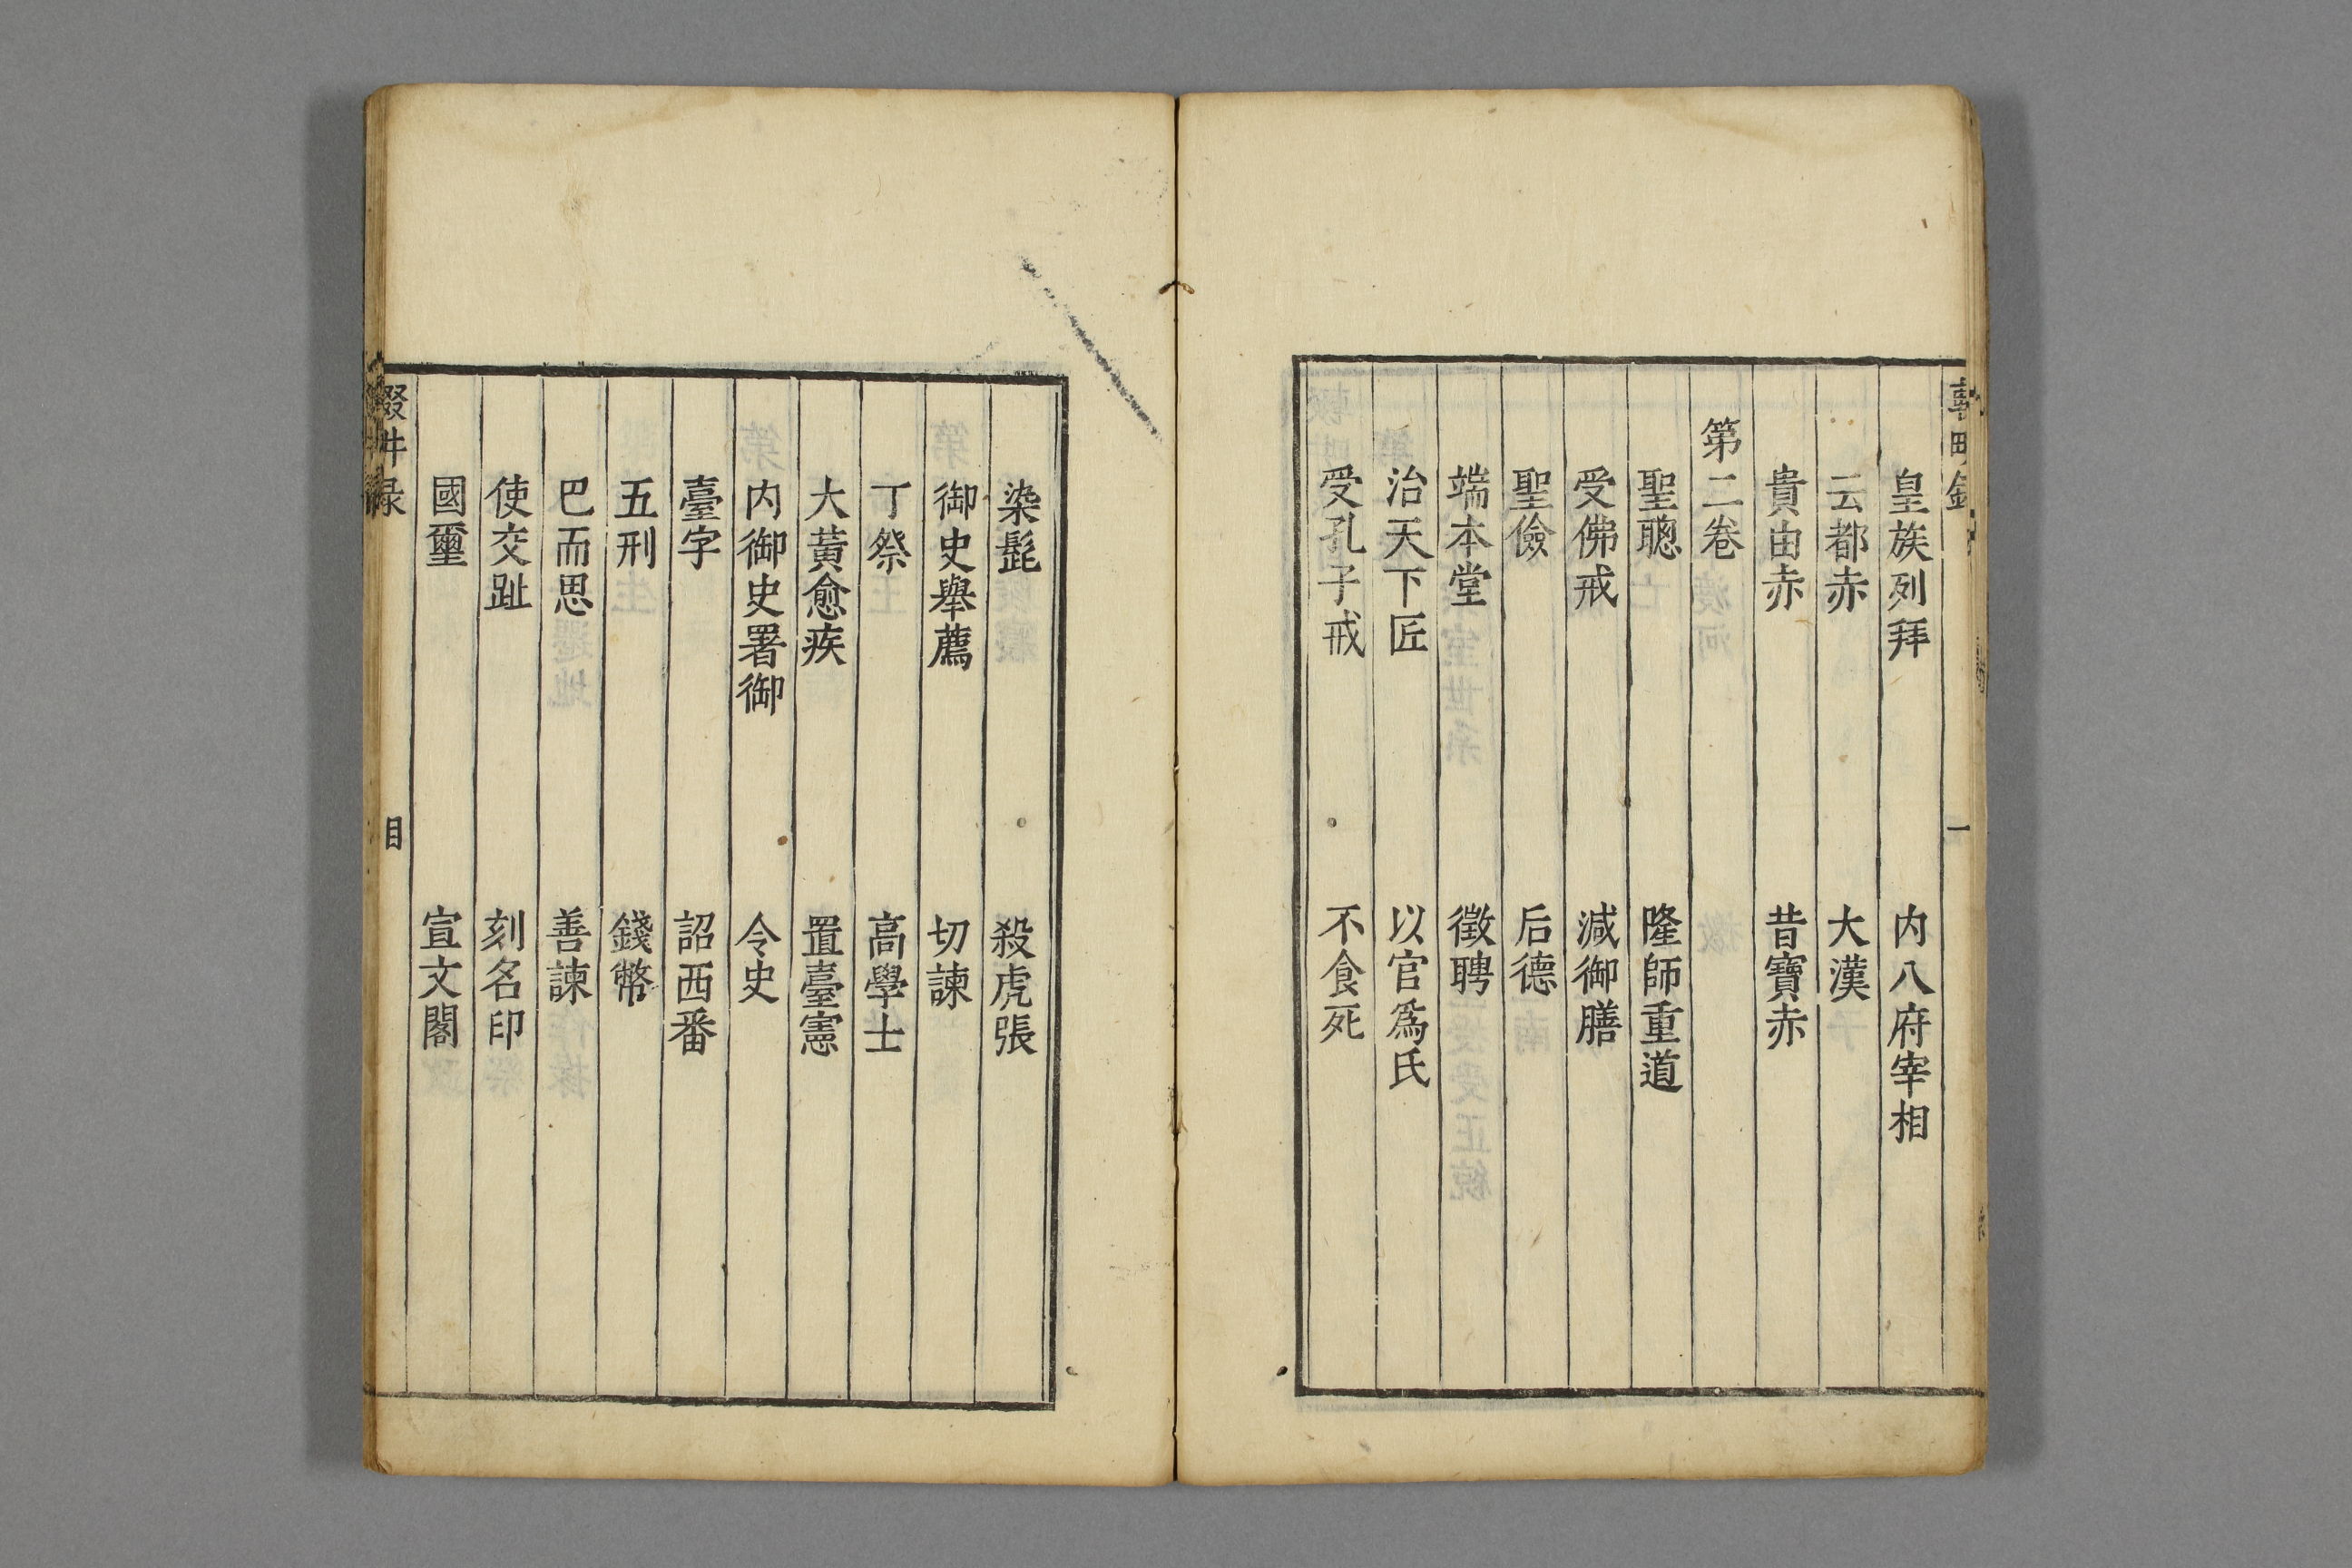 皇族列拜　内八府宰相
云都赤　大漢
貴由赤　昔寶赤
第二卷
聖聰　隆師重道
受佛戒　減御膳
聖儉　后德
端本堂　徵聘
治天下匠　以官爲氏
受孔子戒　不食死
一
染髭　殺虎張
御史舉薦　切諫
丁祭　高學士
大黃愈疾　置臺憲
内御史署御　令史
臺字　詔西番
五刑　錢幣
巴而思　善諫
使交趾　刻名印
國璽　宣文閣
目